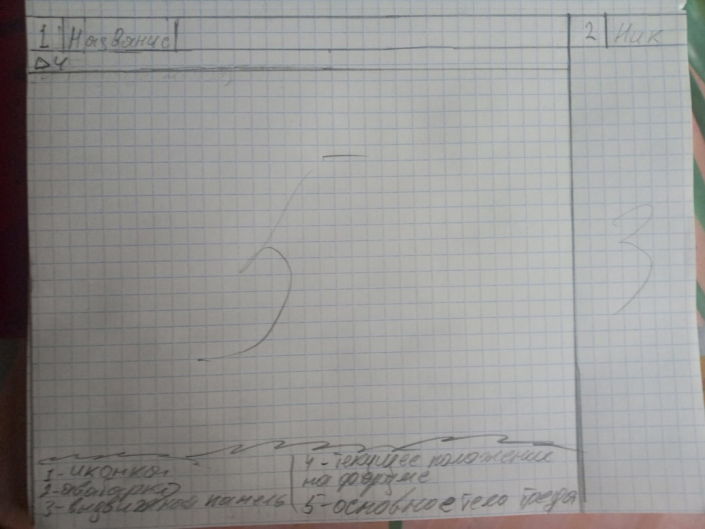 1 Название 2 Ник
▷4
5 3
1-иконка
2-аватарка
3-выдвижная панель
4-текущее положение
на форуме
5-основное тело треда